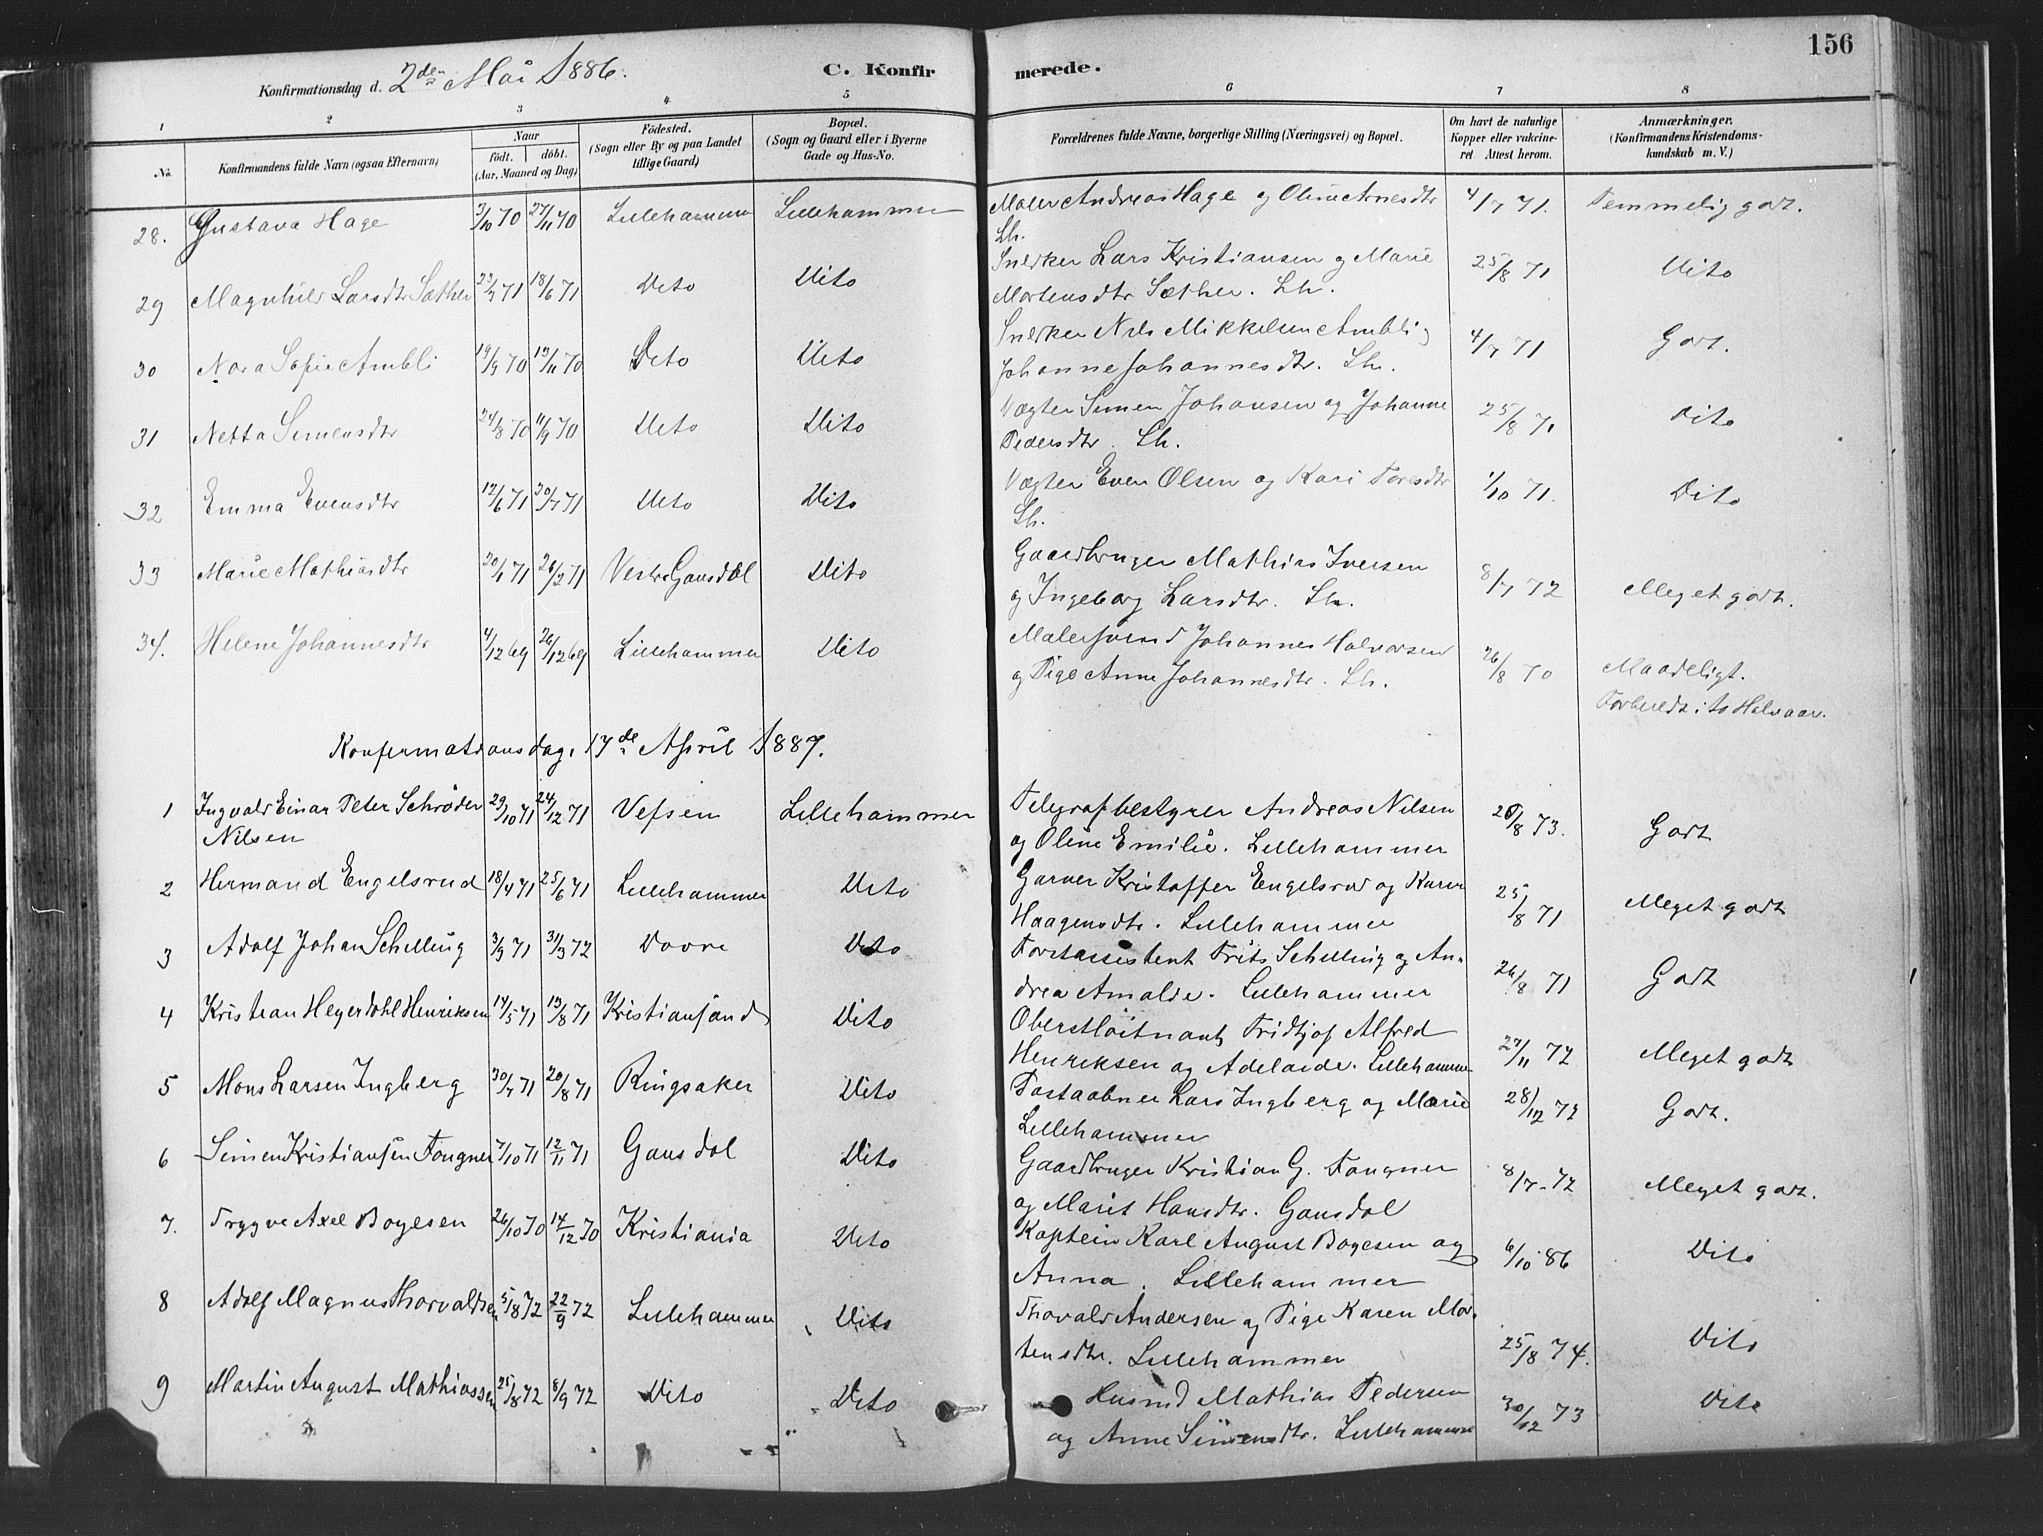 156
Konfirmationsdag d. 2den Mai 1886.
C. Konfirmerede.
1 2 3 4 5 6 7 8
No. Konfirmandens fulde Navn (ogsaa Efternavn) Naar født. døbt. (Aar, Maaned og Dag) Fødested. (Sogn eller By og paa Landet tillige Gaard) Bopæl. (Sogn og Gaard eller i Byerne Gade og Hus-No. Forældrenes fulde Navne, borgerlige Stilling (Næringsvei) og Bopæl. Om havt de naturlige Kopper eller vakcineret Attest herom. Anmærkninger. (Konfirmandens Kristendomskundskab m. V.)
28. Gustava Hage 3/10 70 27/11 70 Lillehammer Lillehammer Maler Andreas Hage og Oline Arnesdtr Lh. 4/7 71. Temmelig godt.
29 Magnhild Larsdtr Sæther 23/4 71 18/6 71 Dito Dito Snedker Lars Kristiansen og Marie Mortensdtr Sæther. Lh. 25/8 71 Dito
30 Nora Sofie Ambli 19/9 70 13/11 70 Dito Dito Snedker Nils Mikkelsen Ambli og Johanne Johannesdtr. Lh. 4/7 71 Godt.
31 Netta Simensdtr 24/8 70 11/9 70 Dito Dito Vægter Simen Johansen og Johanne Pedersdtr. Lh. 25/8 71 Dito
32 Emma Evensdtr 12/6 71 30/7 71 Dito Dito Vægter Even Olsen og Kari Toresdtr Lh. 1/10 71. Dito
33 Marie Mathiasdtr 20/1 71 26/2 71 Vestre Gausdal Dito Gaardbruger Mathias Iversen og Ingeborg Larsdtr. Lh. 8/7 72 Meget godt.
34. Helene Johannesdtr 4/12 69 26/12 69 Lillehammer Dito Malersvend Johannes Halvorsen og Pige Anne Johannesdtr. Lh. 26/8 70 Maadeligt. Forberedt i to Halvaar.
Konfirmationsdag. 17de April 1887.
1 Ingvald Einar Peter Schrøder Nilsen 29/10 71 24/12 71 Vefsen Lillehammer Telegrafbestyrer Andreas Nilsen og Oline Emilie. Lillehammer 28/8 73. Godt
2 Hermand Engelsrud 18/4 71 25/6 71 Lillehammer Dito Garver Kristoffer Engelsrud og Karen Haagensdtr. Lillehammer 25/8 71 Meget godt
3 Adolf Johan Schelling 3/9 71 31/3 72 Dovre Dito Forstassistent Frits Schelling og Andrea Amalde. Lillehammer 26/8 71 Godt
4 Kristian Heyerdahl Henriksen 14/5 71 13/8 71 Kristiansand Dito Oberstløitnant Fridtjof Alfred Henriksen og Adelaide. Lillehammer 27/11 72 Meget godt
5 Mons Larsen Ingberg 30/7 71 20/8 71 Ringsaker Dito Postaabner Lars Ingberg og Marie Lillehammer 28/12 72 Godt.
6 Simen Kristiansen Fougner 7/10 71 12/11 71 Gausdal Dito Gaardbruger Kristian G. Fougner og Marit Hansdtr. Gausdal 8/7-72 Meget godt.
7. Trygve Axel Boyesen 26/10 70 14/12 70 Kristiania Dito Kaptein Karl August Boyesen og Anna. Lillehammer 6/10 86 Dito
8 Adolf Magnus Thorvaldsen 5/8 72 22/9 72 Lillehammer Dito Thorvald Andersen og Pige Karen Mortensdtr. Lillehammer 25/8 74. Dito
9 Martin August Mathiassen 25/8 72 8/9 72 Dito Dito Husmd Mathias Pedersen og Anne Simensdtr. Lillehammer 30/12 73 Dito